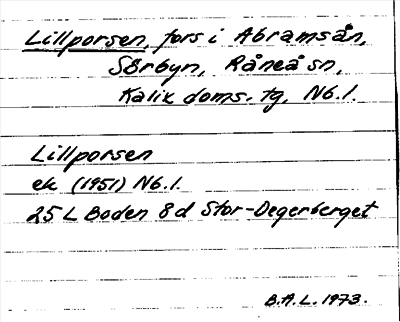 Lillporsen, fors i Abramsån,
Sörbyn, Råneå sn,
Kalix doms. tg, Nb.l.
Lillporsen
ek (1951) Nb.l.
25 L Boden 8d Stor-Degerberget
B.A.L. 1973.